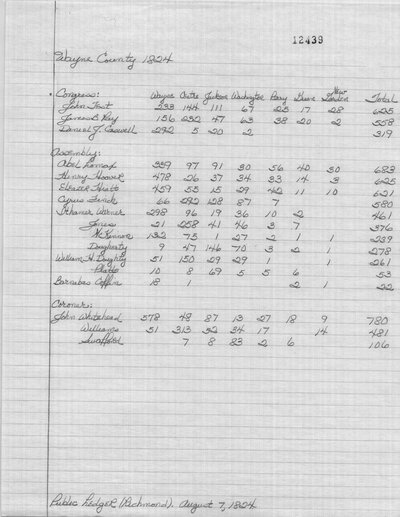 12439
Wayne County 1824
Congress: Wayne Centre Jackson Washington Perry Greene New London Total
John Test 233 144 111 67 25 17 28 625
James B. Ray 156 232 47 63 38 20 2 558
Daniel J. Caswell 292 5 20 2 319
Assembly:
Abel Lomax 339 97 91 30 56 40 30 683
Henry Hoover 478 26 37 34 33 14 3 625
Eleazer Hiatt 459 55 15 29 42 11 10 621
Cyrus Finch 66 292 128 87 7 580
298 96 19 36 10 2 461
Jones 21 258 41 46 3 7 376
McKinnon 132 75 1 27 2 1 1 239
Dougherty 9 47 146 70 3 2 1 278
William H. Doughty 51 150 29 29 1 1 261
Platts 10 8 69 5 5 6 53
Barnabas Coffin 18 1 2 1 22
Coroner:
John Whitehead 578 48 87 13 27 18 9 780
Williams 51 313 52 34 17 14 481
Swafford 7 8 83 2 6 106
Public Ledger (Richmond), August 7, 1824